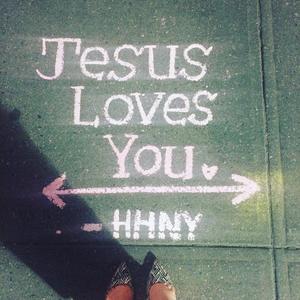 Jesus
Loves
You.
HHNY